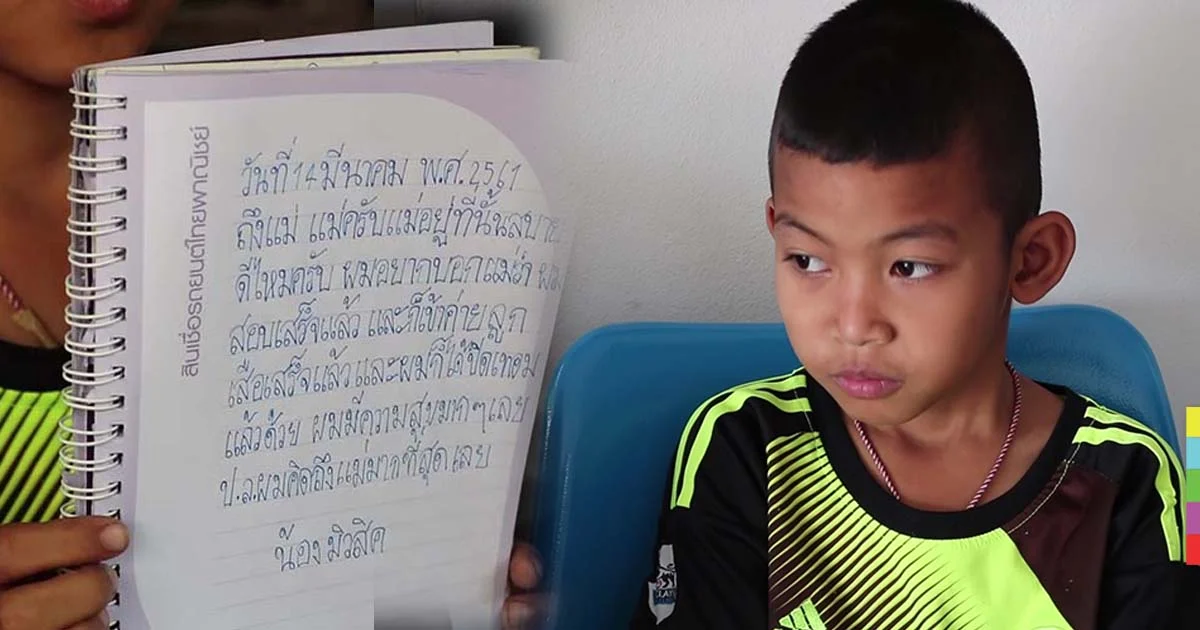 สินเชื่อรถยนต์ไทยพาณิชย์
วันที่ 14 มีนาคม พ.ศ. 2561
ถึงแม่ แม่ครับแม่อยู่ที่นั้นสบาย
ดีไหมครับ ผมอยากบอกแม่ว่า ผม
สอบเสร็จแล้ว และก็เข้าค่ายลูก
เสือเสร็จแล้ว และผมก็ได้ปิดเทอม
แล้วด้วย ผมมีความสุขมากๆเลย
ป.ล.ผมคิดถึงแม่มากที่สุดเลย
น้องมิวสิค